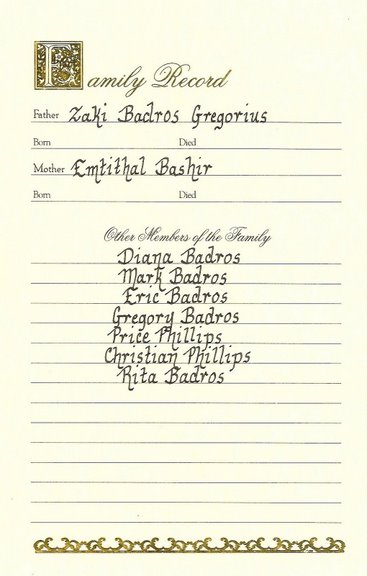 Family Record
Father Zaki Badros Gregorius
Born Died
Mother Emtithal Bashir
Born Died
Other Members of the Family
Diana Badros
Mark Badros
Eric Badros
Gregory Badros
Price Phillips
Christian Phillips
Rita Badros